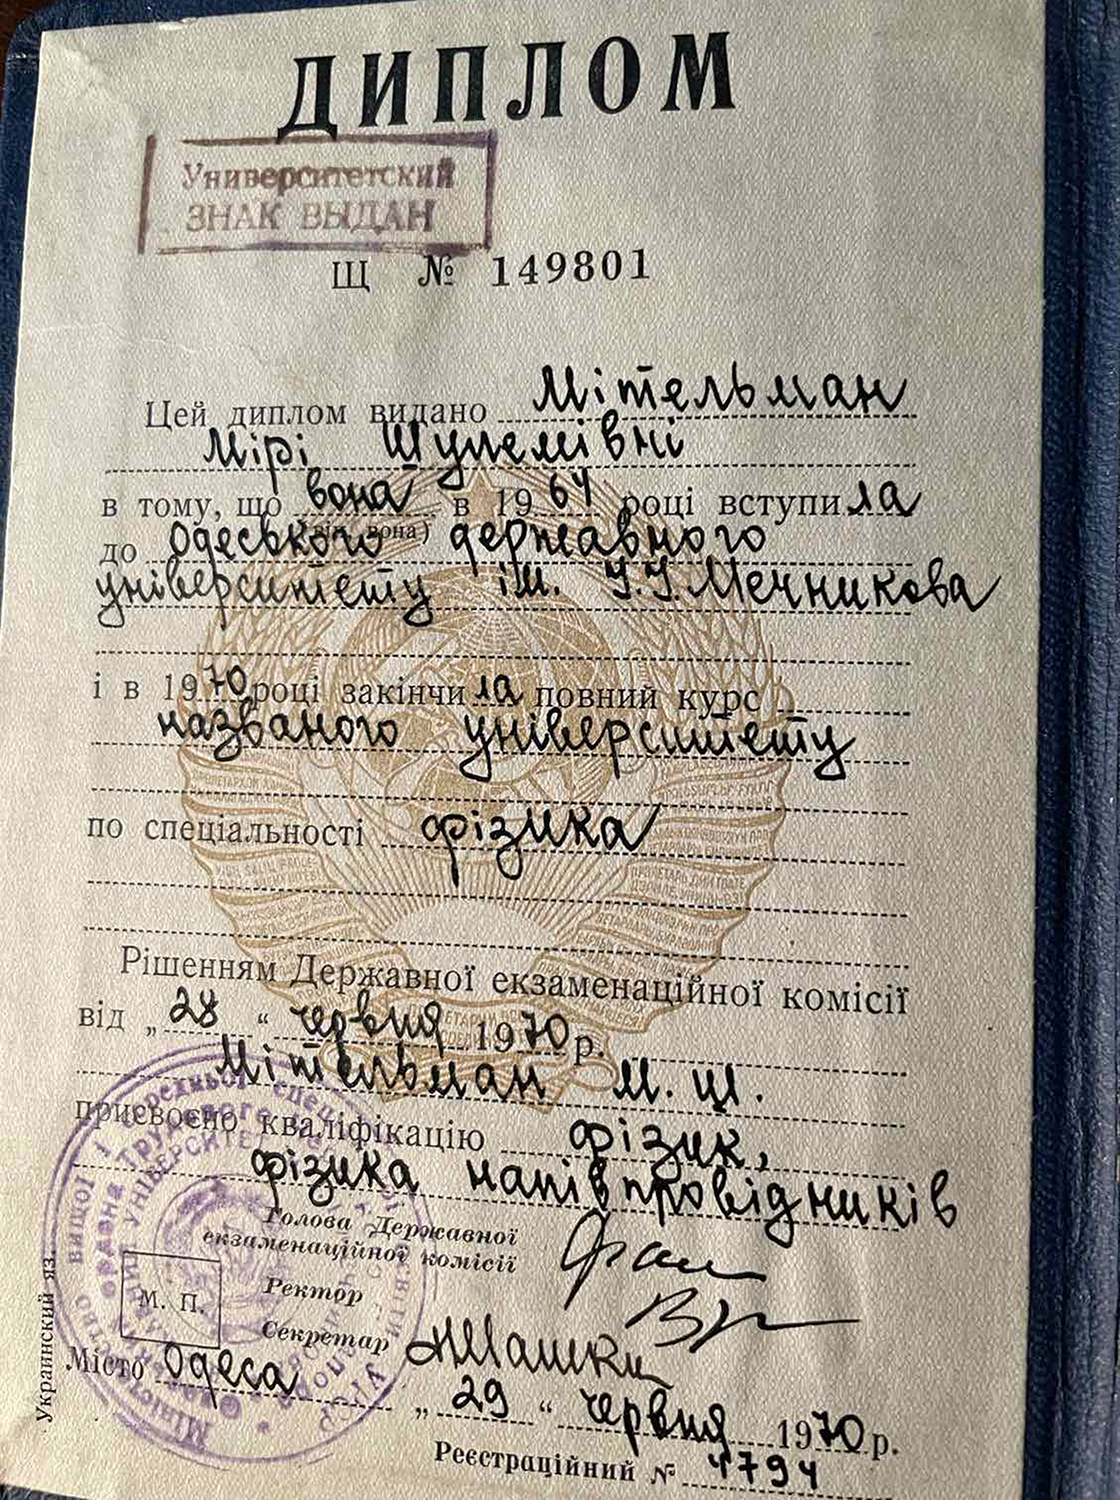 ДИПЛОМ
Университетский
ЗНАК ВЫДАН
Щ № 149801
Цей диплом видано Мітельман
Мірі Шулемівні
в тому, що вона в 1964 році вступила
(він, вона)
до Одеського державного
університету ім. І.І.Мечникова
і в 1970 році закінчила повний курс
названого університету
по спеціальності фізика
Рішенням Державної екзаменаційної комісії
від „28“ червня 1970 р.
Мітельман М. Ш.
присвоєно кваліфікацію фізик,
фізика напівпровідників
Голова Державної
екзаменаційної комісії
Ректор
Секретар
М. П.
Місто Одеса
„29“ червня 1970 р.
Реєстраційний № 4794
Украинский яз.